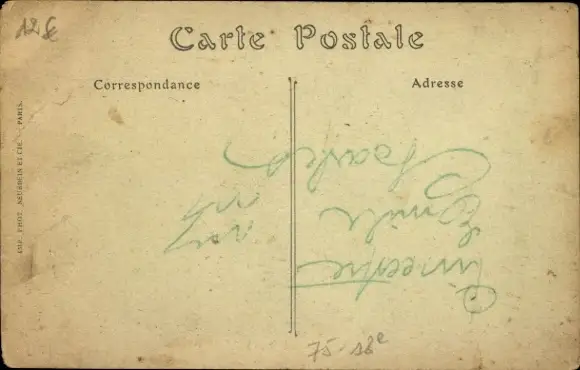 12 €
Carte Postale
Correspondance
Adresse
IMP. PHOT. NEURDEIN ET CIE. - PARIS.
Emile
75-18e